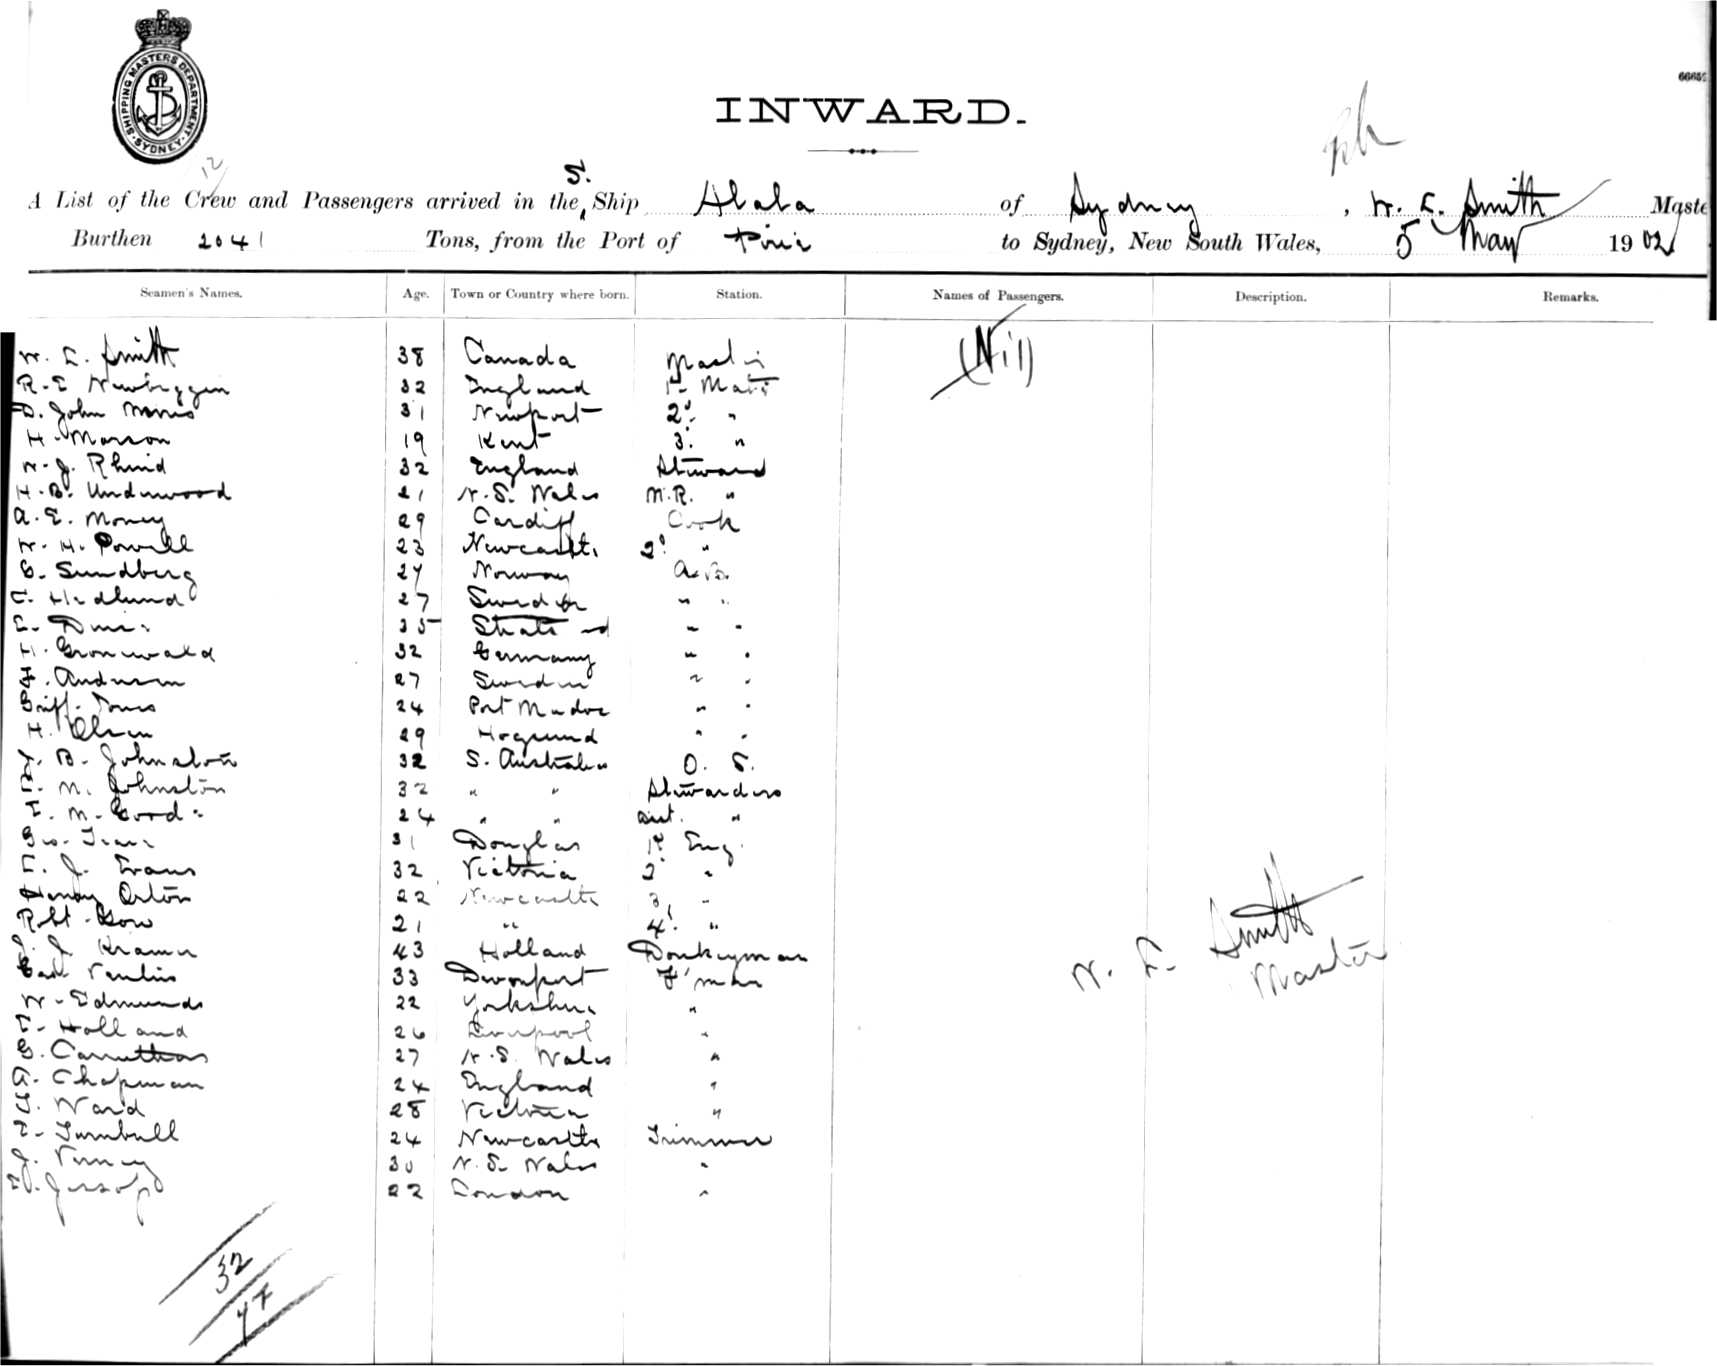 SHIPPING MASTERS DEPARTMENT
SYDNEY
6665
INWARD.
12
A List of the Crew and Passengers arrived in the S. Ship Ababa of Sydney, W. E. Smith Maste
Burthen 2041 Tons, from the Port of Pirie to Sydney, New South Wales, 5 May 1902
Seamen's Names. Age. Town or Country where born. Station. Names of Passengers. Description. Remarks.
(Nil)
W. E. Smith 38 Canada Master
R. E Newbiggin 32 England 1st Mate
D. John Morris 31 Newport 2d "
H. Marson 19 Kent 3d "
W. J. Rhind 32 England Steward
H. B. Underwood 21 N. S. Wales M.R. "
A. E. Money 29 Cardiff Cook
W. H. Powell 23 Newcastle 2d "
G. Sundberg 27 Norway A.B.
C. Hedlund 27 Sweden " "
35 " "
H. Gronwald 32 Germany " "
F. Andersen 27 Sweden " "
Griff. Jones 24 Port Madoc " "
H. Olsen 29 " "
J. B. Johnston 32 S. Australia O. S.
E. M. Johnston 32 " " Stewardess
24 " " Asst. "
31 Douglas 1st Eng.
E. J. Evans 32 Victoria 2 "
Henry Orton 22 Newcastle 3 "
Robt Gow 21 " 4 "
J. J. Kramer 43 Holland Donkeyman
33 Devonport F'man
W. Edmunds 22 Yorkshire "
T. Holland 26 Liverpool "
G. Carruthers 27 N. S. Wales "
A. Chapman 24 England "
T. Ward 28 Victoria "
T. Turnbull 24 Newcastle Trimmer
J. Verney 30 N. S. Wales "
Jessop 22 London "
W. E. Smith
Master
32
47